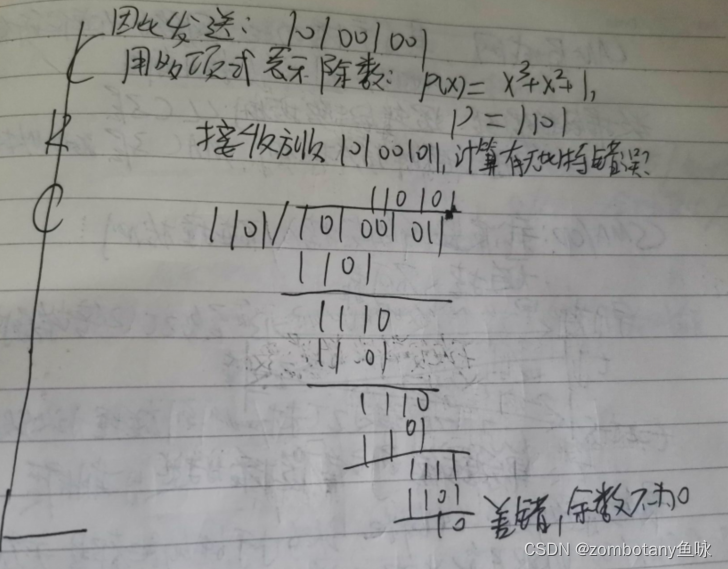 因此发送: 101001001
用多项式表示除数: P(x)= x³+x²+1,
P = 1101
接收方收 10100101, 计算有无比特错误?
C
R
C
11010
1101/10100101
1101
1110
1101
1110
1101
1111
1101
10 差错, 余数不为0
CSDN @zombotany鱼咏